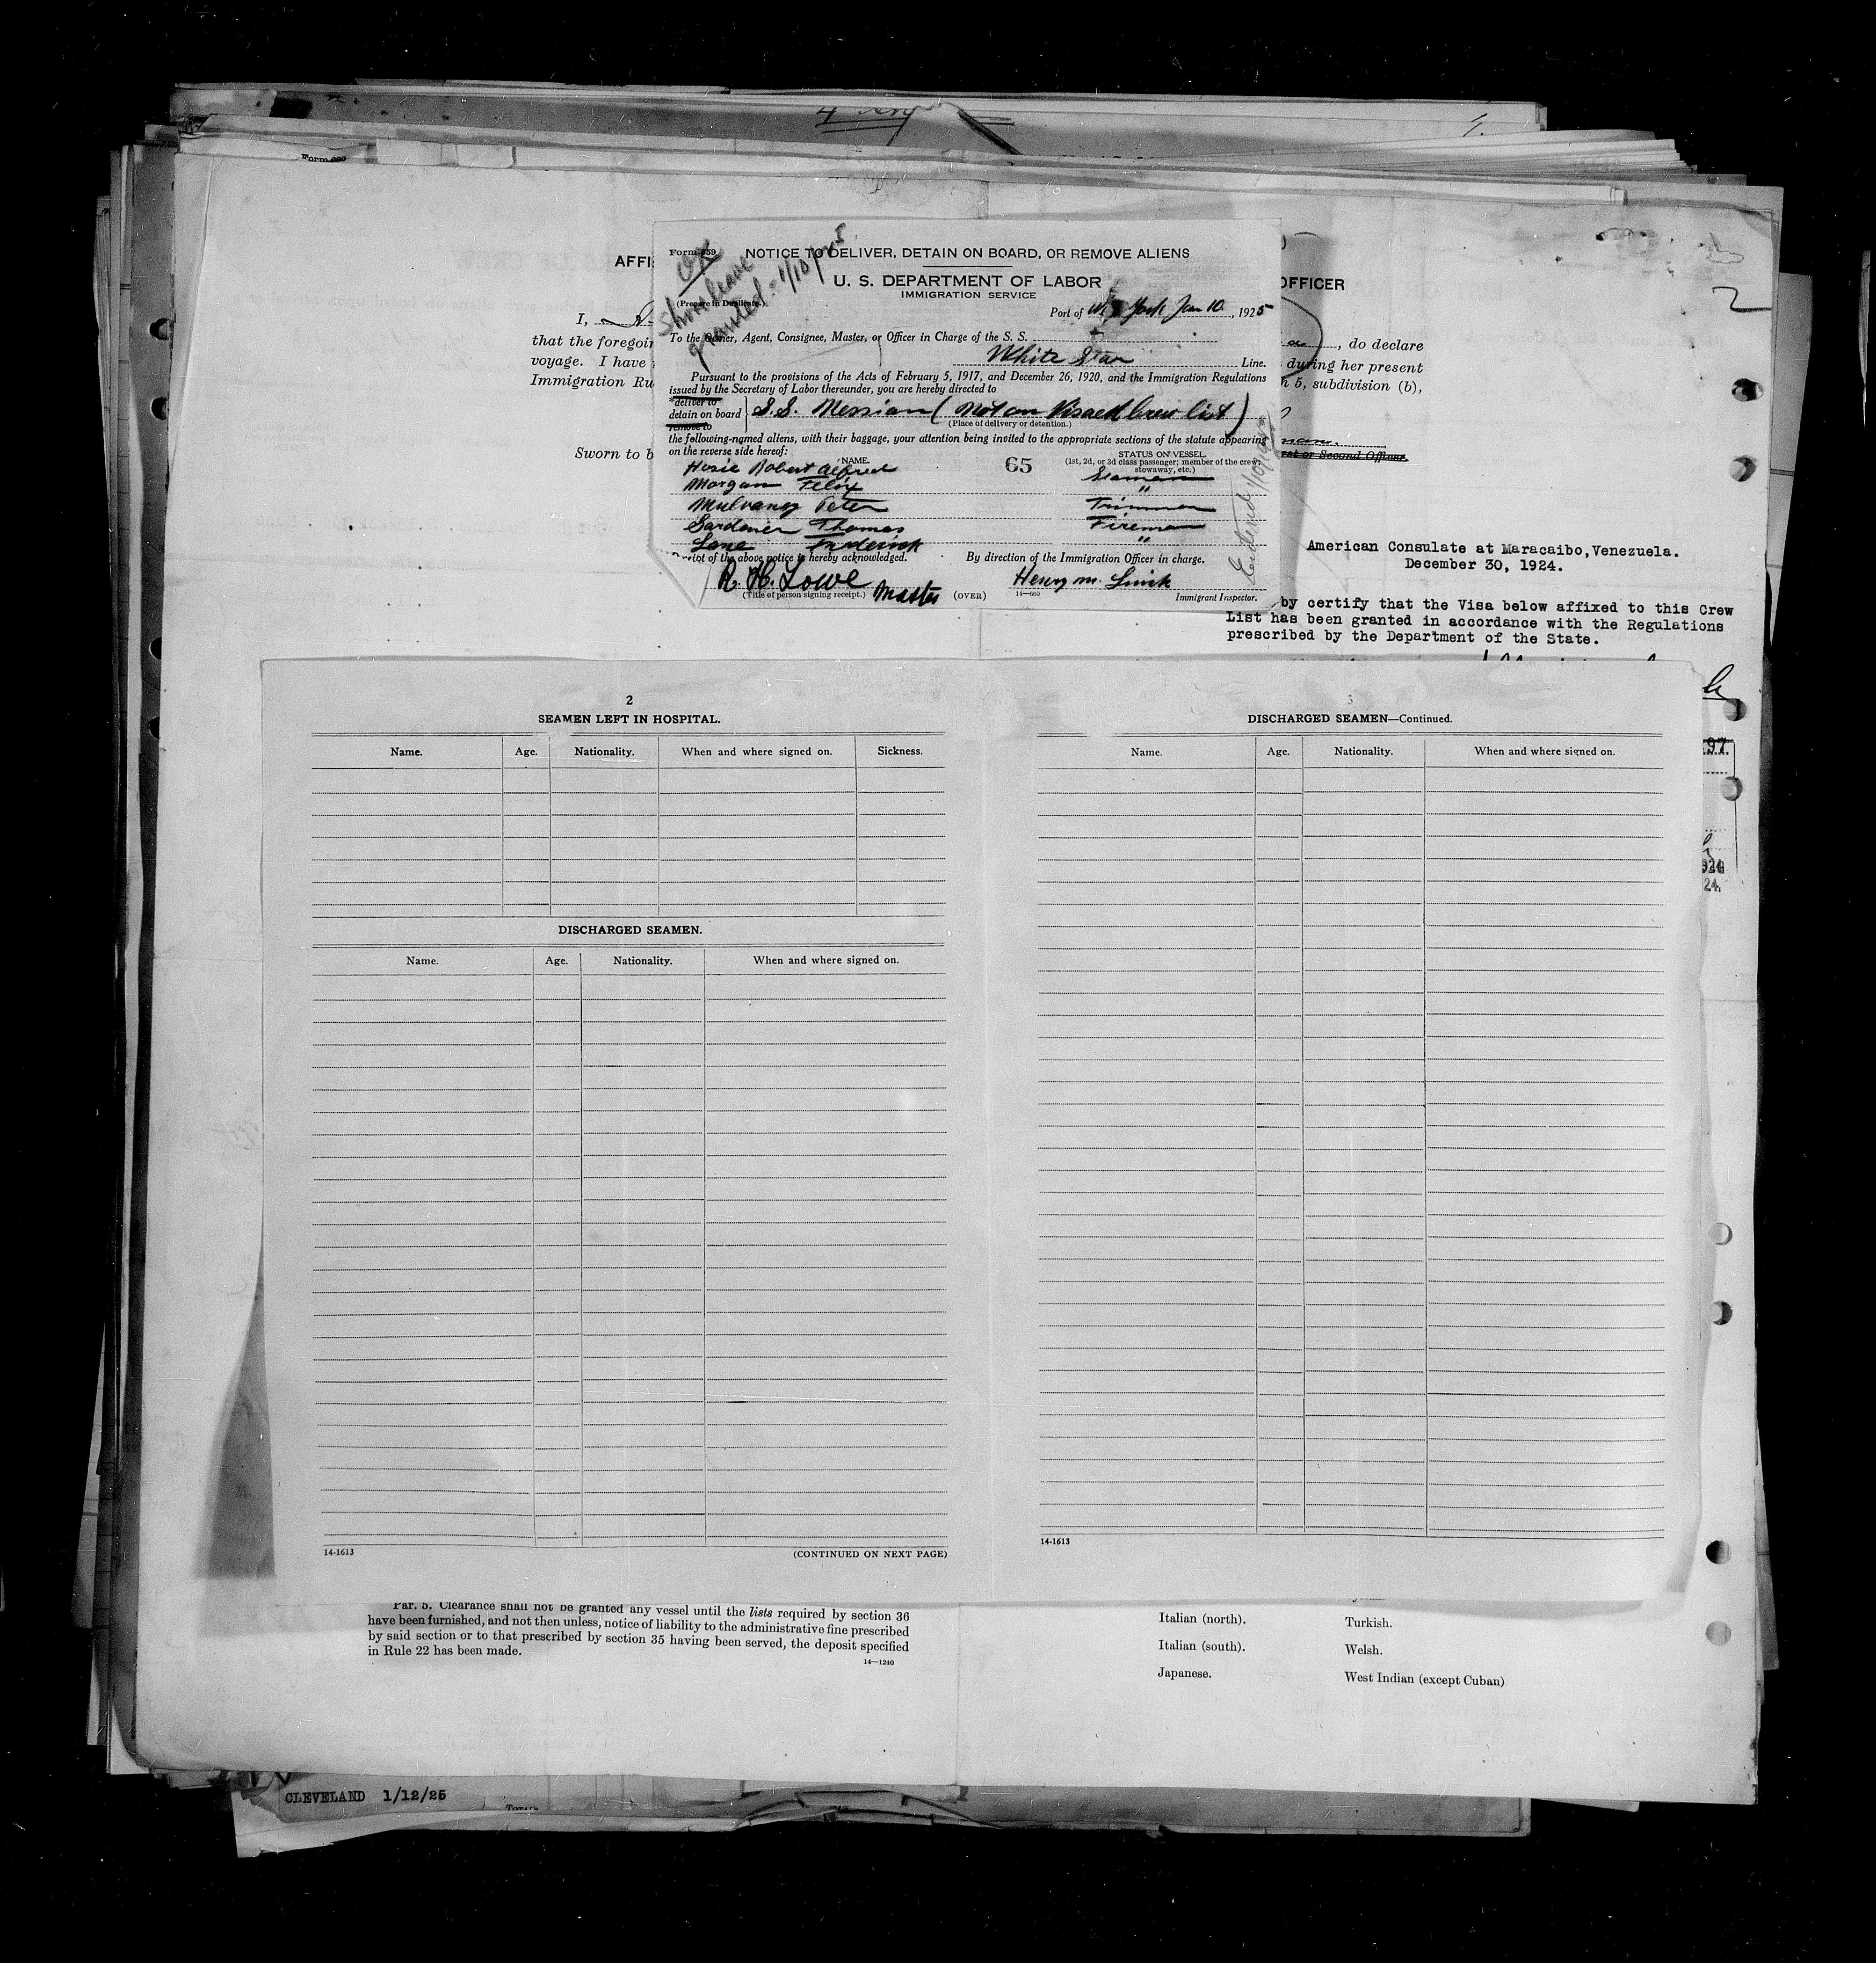 AFFI
OFFICER
I,
that the foregoin
voyage. I have
Immigration Ru
Sworn to b
, do declare
during her present
5, subdivision (b),
First or Second Officer.
Form 659
NOTICE TO DELIVER, DETAIN ON BOARD, OR REMOVE ALIENS
OK
Shore leave
granted - 1/10/25
U. S. DEPARTMENT OF LABOR
IMMIGRATION SERVICE
(Prepare in Duplicate.)
Port of N. York Jan 10, 1925
To the Owner, Agent, Consignee, Master, or Officer in Charge of the S. S.
White Star Line.
Pursuant to the provisions of the Acts of February 5, 1917, and December 26, 1920, and the Immigration Regulations
issued by the Secretary of Labor thereunder, you are hereby directed to
*deliver to
detain on board S.S. Messian (not on Visaed Crew list)
remove to
(Place of delivery or detention.)
the following-named aliens, with their baggage, your attention being invited to the appropriate sections of the statute appearing
on the reverse side hereof:
NAME.
65
STATUS ON VESSEL
(1st, 2d, or 3d class passenger; member of the crew,
stowaway, etc.)
Hosie Robert Alfred Seaman
Morgan Felix "
Mulvaney Peter Trimmer
Gardener Thomas Fireman
Lane Frederick "
Receipt of the above notice is hereby acknowledged.
By direction of the Immigration Officer in charge.
R. H. Lowe Master
Henry M.
(Title of person signing receipt.)
(OVER)
14—660
Immigrant Inspector.
American Consulate at Maracaibo, Venezuela.
December 30, 1924.
by certify that the Visa below affixed to this Crew
List has been granted in accordance with the Regulations
prescribed by the Department of the State.
97
24.
2
SEAMEN LEFT IN HOSPITAL.
Name. Age. Nationality. When and where signed on. Sickness.
DISCHARGED SEAMEN.
Name. Age. Nationality. When and where signed on.
14-1613
(CONTINUED ON NEXT PAGE)
3
DISCHARGED SEAMEN—Continued.
Name. Age. Nationality. When and where signed on.
14-1613
Par. 5. Clearance shall not be granted any vessel until the lists required by section 36
have been furnished, and not then unless, notice of liability to the administrative fine prescribed
by said section or to that prescribed by section 35 having been served, the deposit specified
in Rule 22 has been made.
14—1240
Italian (north). Turkish.
Italian (south). Welsh.
Japanese. West Indian (except Cuban)
CLEVELAND 1/12/25